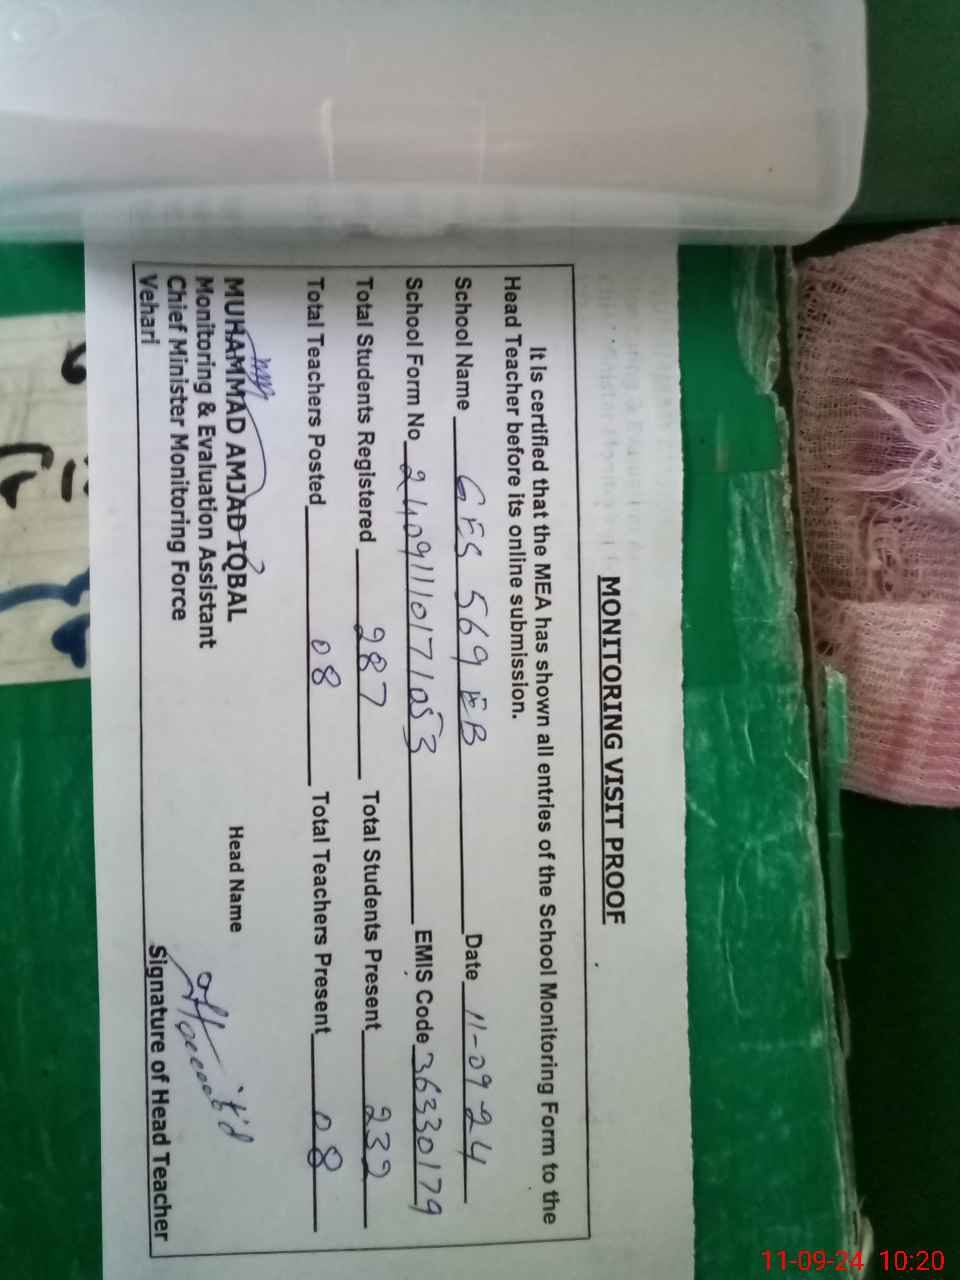 MONITORING VISIT PROOF
It is certified that the MEA has shown all entries of the School Monitoring Form to the
Head Teacher before its online submission.
School Name GES 569 EB Date 11-09-24
School Form No 24091110171053 EMIS Code 36330179
Total Students Registered 287 Total Students Present 232
Total Teachers Posted 08 Total Teachers Present 08
MUHAMMAD AMJAD IQBAL Head Name
Monitoring & Evaluation Assistant
Chief Minister Monitoring Force
Vehari Signature of Head Teacher
11-09-24 10:20